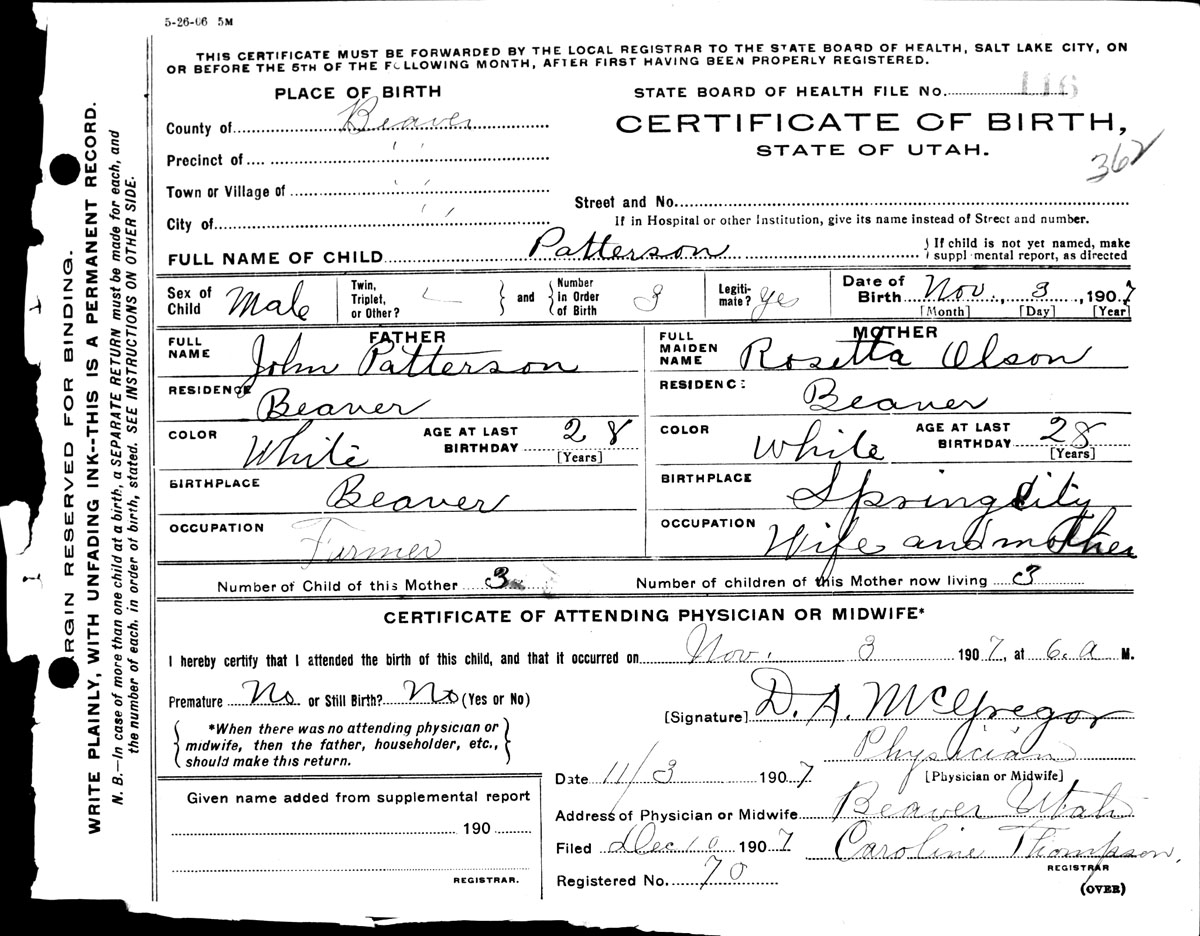 5-26-06 5M
THIS CERTIFICATE MUST BE FORWARDED BY THE LOCAL REGISTRAR TO THE STATE BOARD OF HEALTH, SALT LAKE CITY, ON
OR BEFORE THE 5TH OF THE FOLLOWING MONTH, AFTER FIRST HAVING BEEN PROPERLY REGISTERED.
PLACE OF BIRTH
STATE BOARD OF HEALTH FILE No. 116
County of Beaver
CERTIFICATE OF BIRTH,
STATE OF UTAH.
362
Precinct of " "
Town or Village of " "
Street and No.
City of " "
If in Hospital or other Institution, give its name instead of Street and number.
FULL NAME OF CHILD Patterson
If child is not yet named, make
suppl mental report, as directed
Sex of Child Male
Twin, Triplet, or Other?
and
Number in Order of Birth 3
Legiti- mate? Yes
Date of Birth Nov., 3, 1907
[Month] [Day] [Year]
FATHER
FULL NAME John Patterson
MOTHER
FULL MAIDEN NAME Rosetta Olson
RESIDENCE Beaver
RESIDENC: Beaver
COLOR White
AGE AT LAST BIRTHDAY 28
[Years]
COLOR White
AGE AT LAST BIRTHDAY 28
[Years]
BIRTHPLACE Beaver
BIRTHPLACE Spring City
OCCUPATION Farmer
OCCUPATION Wife and mother
Number of Child of this Mother 3
Number of children of this Mother now living 3
CERTIFICATE OF ATTENDING PHYSICIAN OR MIDWIFE*
I hereby certify that I attended the birth of this child, and that it occurred on Nov. 3 1907, at 6. a M.
Premature No or Still Birth? No (Yes or No)
[Signature] D. A. McGregor
*When there was no attending physician or
midwife, then the father, householder, etc.,
should make this return.
Physician
[Physician or Midwife]
Date 11/3 1907
Given name added from supplemental report
Address of Physician or Midwife Beaver Utah
190
Filed Dec 10 1907 Caroline Thompson,
REGISTRAR
Registered No. 70
REGISTRAR.
(OVER)
RGIN RESERVED FOR BINDING.
WRITE PLAINLY, WITH UNFADING INK--THIS IS A PERMANENT RECORD.
N. B.—In case of more than one child at birth, a SEPARATE RETURN must be made for each, and
the number of each, in order of birth, stated. SEE INSTRUCTIONS ON OTHER SIDE.